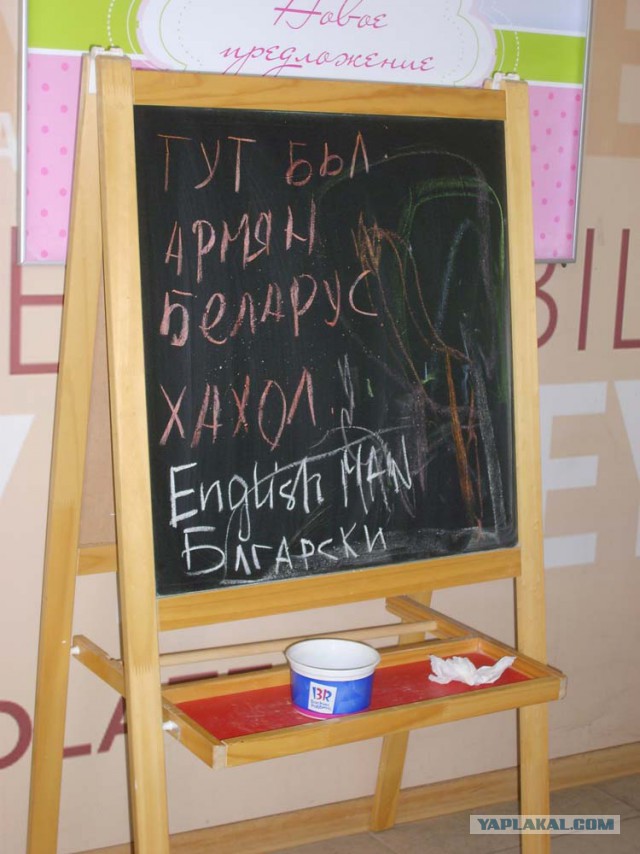 Новое
предложение
ТУТ БЫЛ
АРМЯН
БеЛАРУС
ХАХОЛ.
English MAN
БЛГАРСКИ
BR
YAPLAKAL.COM